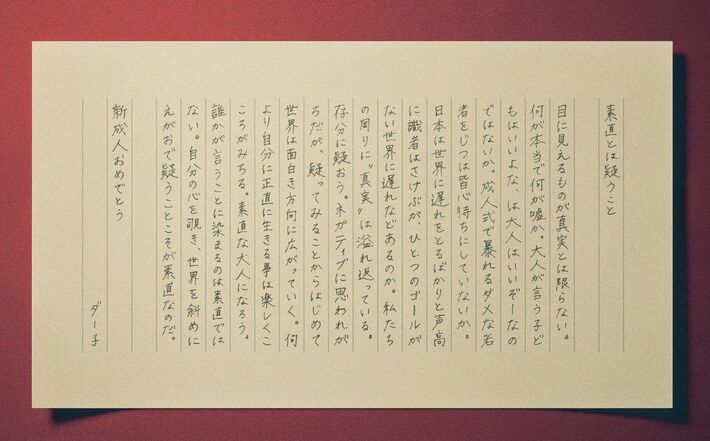 素直とは疑うこと
目に見えるものが真実とは限らない。
何が本当で何が嘘か。大人が言う子ど
もはいいよな、は大人はいいぞーなの
ではないか。成人式で暴れるダメな若
者をじつは皆心待ちにしていないか。
日本は世界に遅れをとるばかりと声高
に識者はさけぶが、ひとつのゴールが
ない世界に遅れなどあるのか。私たち
の周りに"真実"は溢れ返っている。
存分に疑おう。ネガティブに思われが
ちだが、疑ってみることからはじめて
世界は面白き方向に広がっていく。何
より自分に正直に生きる事は楽しくこ
ころがみちる。素直な大人になろう。
誰かが言うことに染まるのは素直では
ない。自分の心を覗き、世界を斜めに
えがおで疑うことこそが素直なのだ。
新成人おめでとう
ダー子